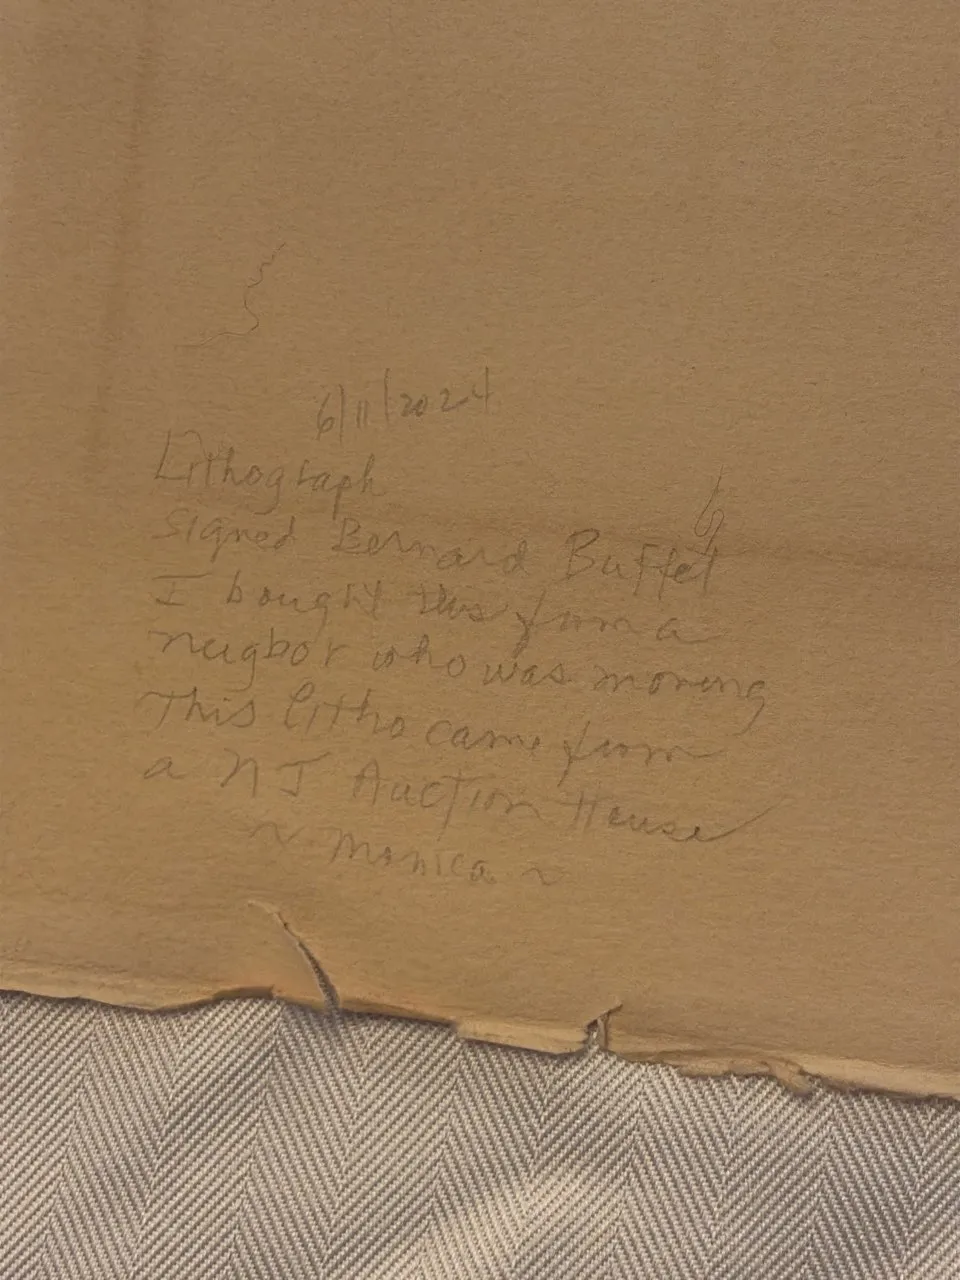 6/11/2024
Lithograph
signed Bernard Buffet
I bought this from a
neigbor who was moving
This litho came from
a NJ Auction House
~ Monica ~